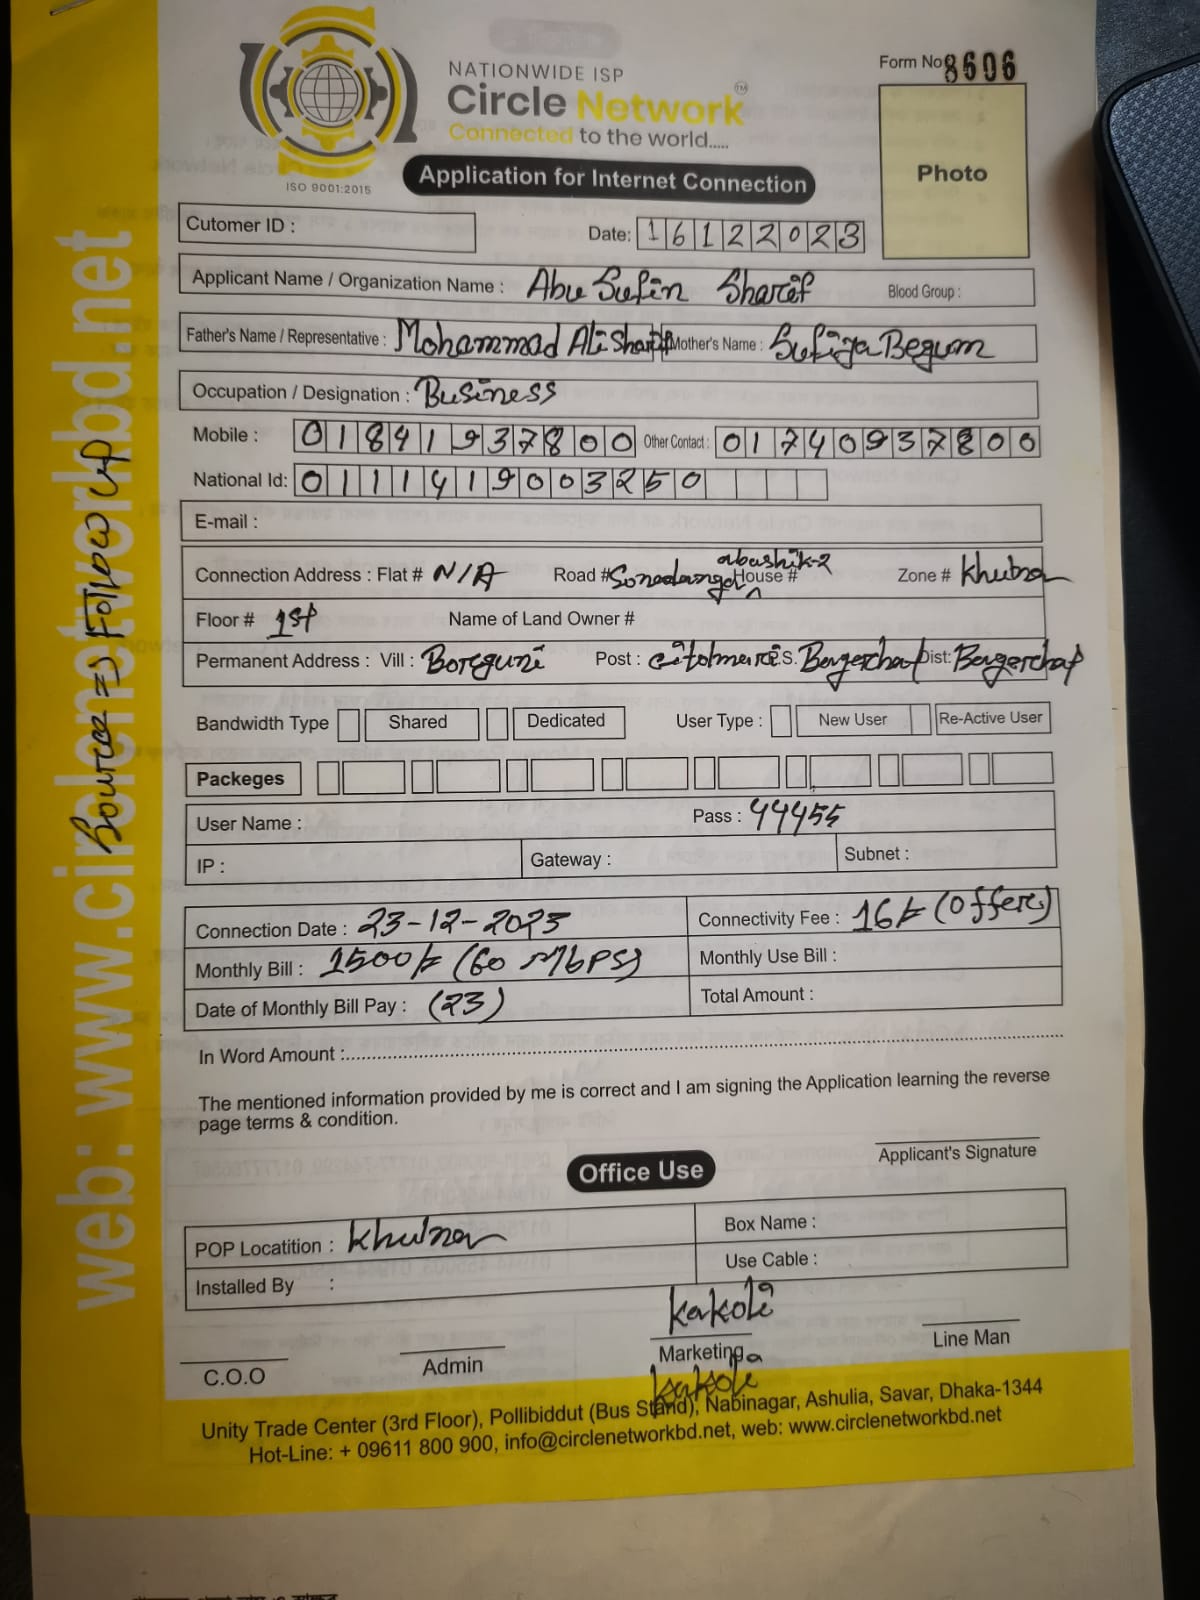 NATIONWIDE ISP
Circle Network™
Connected to the world.....
ISO 9001:2015
Form No 8606
Photo
Application for Internet Connection
Cutomer ID :
Date: 16122023
Applicant Name / Organization Name : Abu Sufin Sharif Blood Group :
Father's Name / Representative : Mohammad Ali Sharif Mother's Name : Sufiya Begum
Occupation / Designation : Business
Mobile : 01841937800 Other Contact : 01740937800
National Id: 0111419003250
E-mail :
Connection Address : Flat # N/A Road # Sonadanga abashik-2 House # Zone # Khulna
Floor # 1st Name of Land Owner #
Permanent Address : Vill : Boreguni Post : P.S. Bagerchap Dist: Bagerchap
Bandwidth Type Shared Dedicated User Type : New User Re-Active User
Packeges
User Name : Pass : 44455
IP : Gateway : Subnet :
Connection Date : 23-12-2023 Connectivity Fee : 16/= (Offer)
Monthly Bill : 1500/= (60 Mbps) Monthly Use Bill :
Date of Monthly Bill Pay : (23) Total Amount :
In Word Amount :
The mentioned information provided by me is correct and I am signing the Application learning the reverse
page terms & condition.
Applicant's Signature
Office Use
POP Locatition : Khulna Box Name :
Installed By : Use Cable :
Kakoli
C.O.O Admin Marketing Line Man
Kakoli
Unity Trade Center (3rd Floor), Pollibiddut (Bus Stand), Nabinagar, Ashulia, Savar, Dhaka-1344
Hot-Line: + 09611 800 900, info@circlenetworkbd.net, web: www.circlenetworkbd.net
web: www.circlenetworkbd.net
Source => Follow up